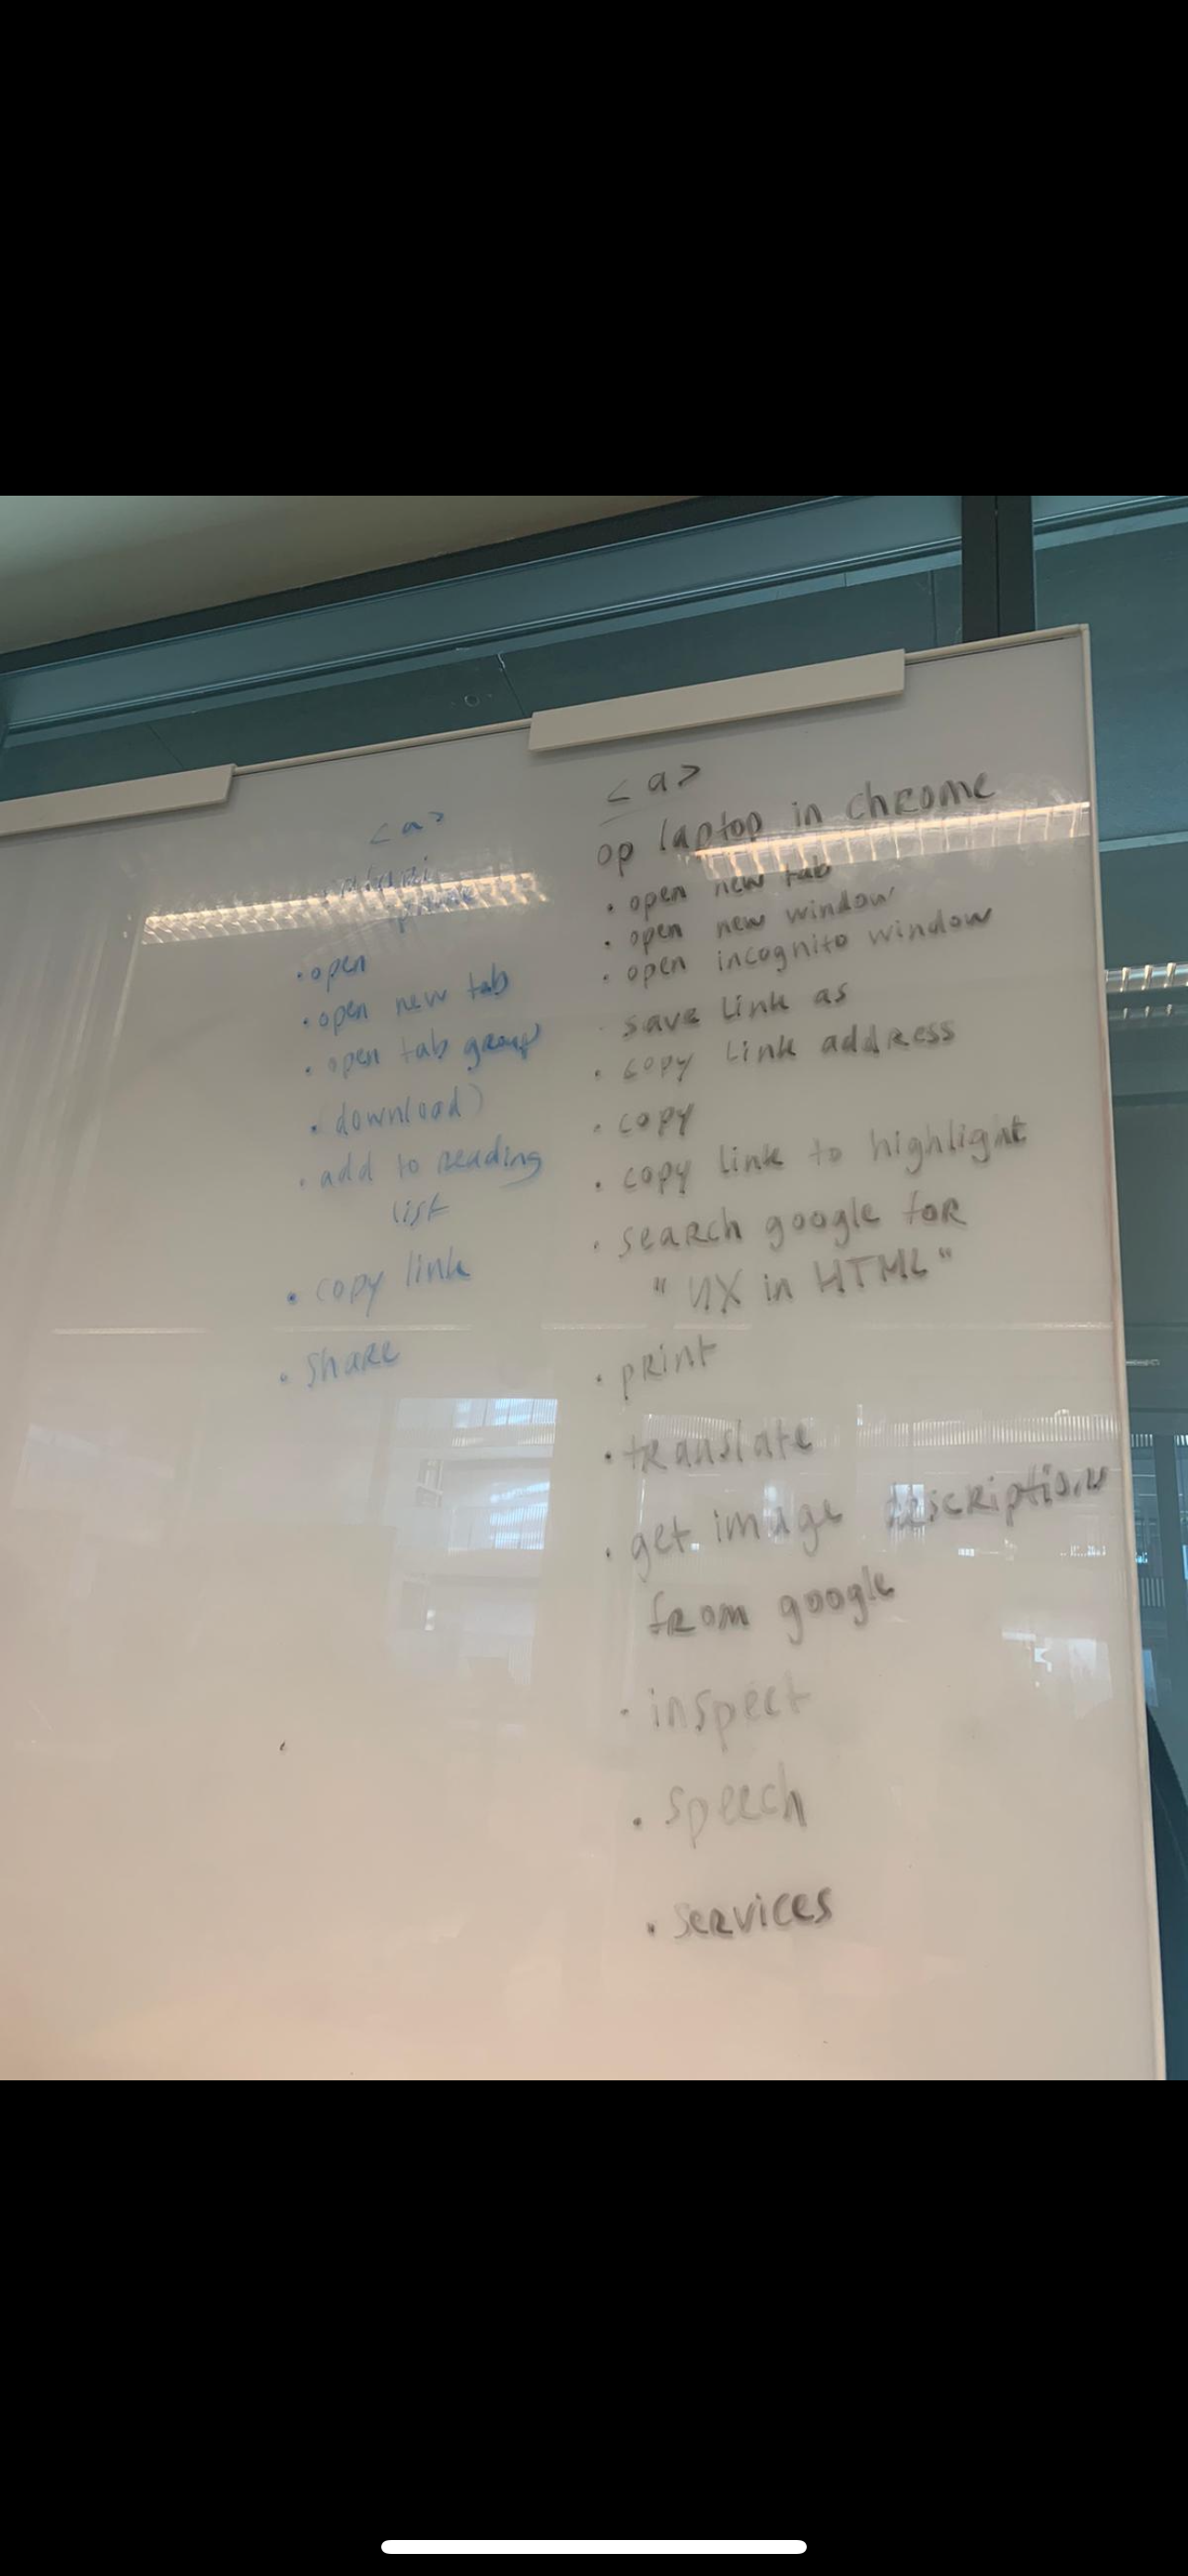 <a>
• open
• open new tab
• open tab group
• (download)
• add to reading
list
• copy link
• share
<a>
op laptop in chrome
• open new tab
• open new window
• open incognito window
• save link as
• copy link address
• copy
• copy link to highlight
• search google for
"UX in HTML"
• print
• translate
• get image descriptions
from google
• inspect
• speech
• services